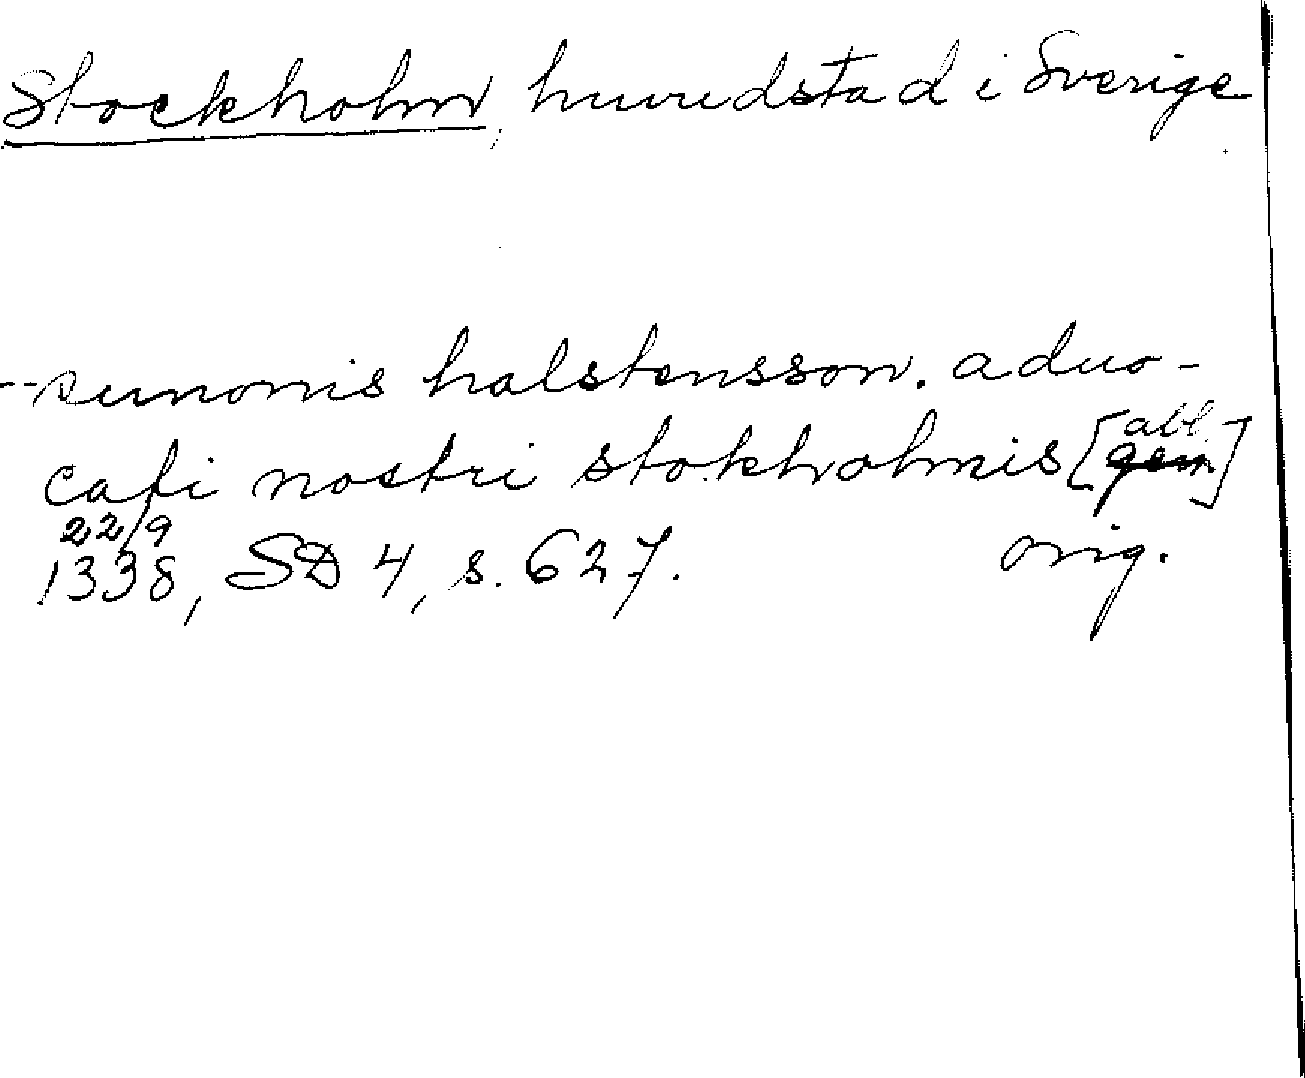 Stockholm, huvudstad i Sverige
--sunonis halstensson. aduo-
cati nostri stokholmis [abl.]
22/9
1338, SD 4, s. 627. orig.